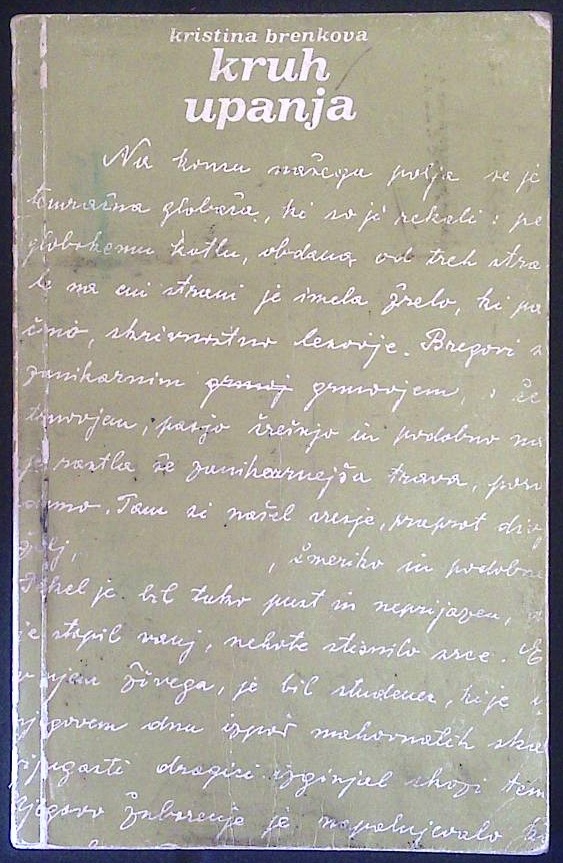 kristina brenkova
kruh
upanja
Na koncu našega polja se je
temračna globača, ki so ji rekali: pe
globokemu kotlu, obdana od treh stra
le na eni strani je imela žrelo, ki pa
čmo, skrivnostno lezovje. Bregovi
zanikarnim grmovjem, že
trnovjem, pasjo črešnjo in podobno na
je rastla še zanikarnejša trava,
Tam si našel vresje, praprot
šmeriko in podobne
Pekel je bil tako pust in neprijazen,
je stopil vanj, nehote stisnilo srce. E
v njem živega, je bil studenec, ki je
njegovem dnu izpod mahovnatih skal
dragici izginjal skozi tem
njegovo žuborenje je napolnjevalo